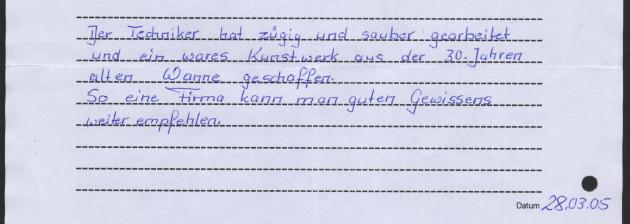 Der Techniker hat zügig und sauber gearbeitet
und ein wares Kunstwerk aus der 30.Jahren
alten Wanne geschaffen.
So eine Firma kann man guten Gewissens
weiter empfehlen.
Datum 28.03.05